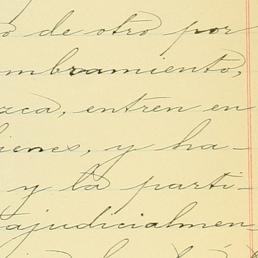 o de otro por
mbramiento,
zca, entren en
ienes, y ha-
y la parti-
ajudicialmen